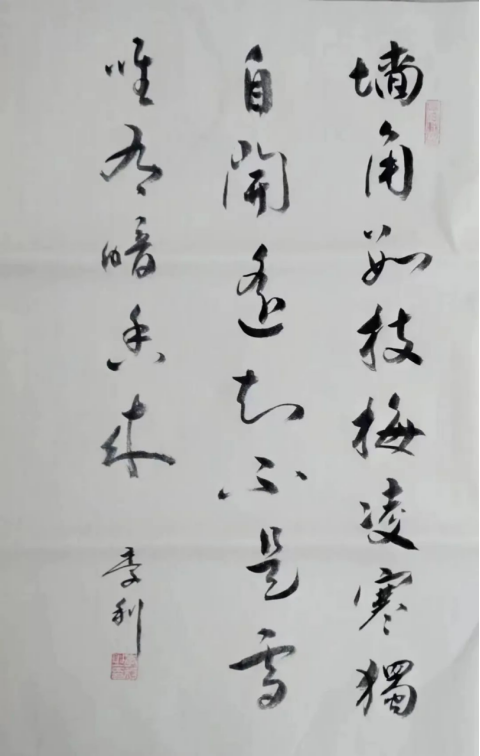 墙角数枝梅凌寒獨
自開遥知不是雪
唯有暗香来
利